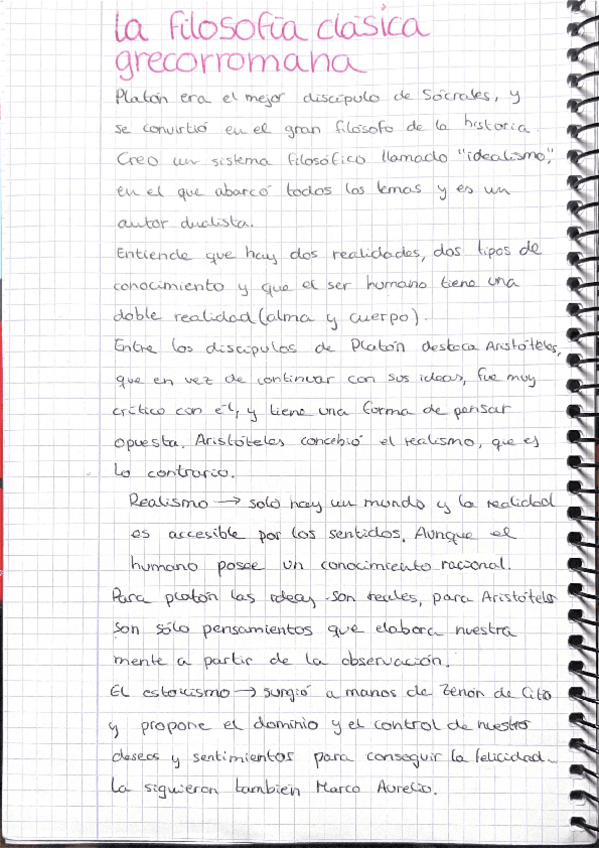 la filosofía clásica
grecorromana
Platón era el mejor discípulo de Sócrates, y
se convirtió en el gran filósofo de la historia.
Creo un sistema filosófico llamado "idealismo",
en el que abarcó todos los temas y es un
autor dualista.
Entiende que hay dos realidades, dos tipos de
conocimiento y que el ser humano tiene una
doble realidad (alma y cuerpo).
Entre los discípulos de Platón destaca Aristóteles,
que en vez de continuar con sus ideas, fue muy
crítico con él, y tiene una forma de pensar
opuesta. Aristóteles concebió el realismo, que es
lo contrario.
Realismo → solo hay un mundo y la realidad
es accesible por los sentidos. Aunque el
humano posee un conocimiento racional.
Para platón las ideas son reales, para Aristóteles
son sólo pensamientos que elabora nuestra
mente a partir de la observación.
El estoicismo → surgió a manos de Zenón de Citio
y propone el dominio y el control de nuestro
deseos y sentimientos para conseguir la felicidad.
La siguieron también Marco Aurelio.